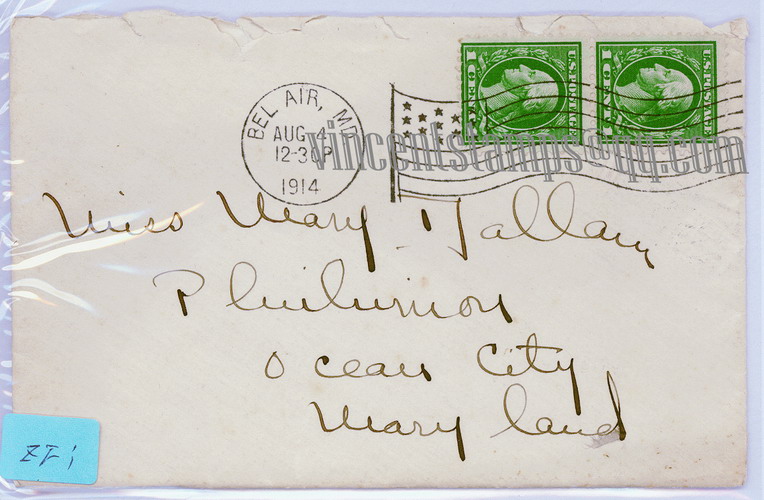 U.S. POSTAGE
1 CENT 1
U.S. POSTAGE
1 CENT 1
BEL AIR, MD.
AUG 4
12-30P
1914
vincentstamps@qq.com
Miss Mary Hallam
Ocean City
Maryland
ZF1